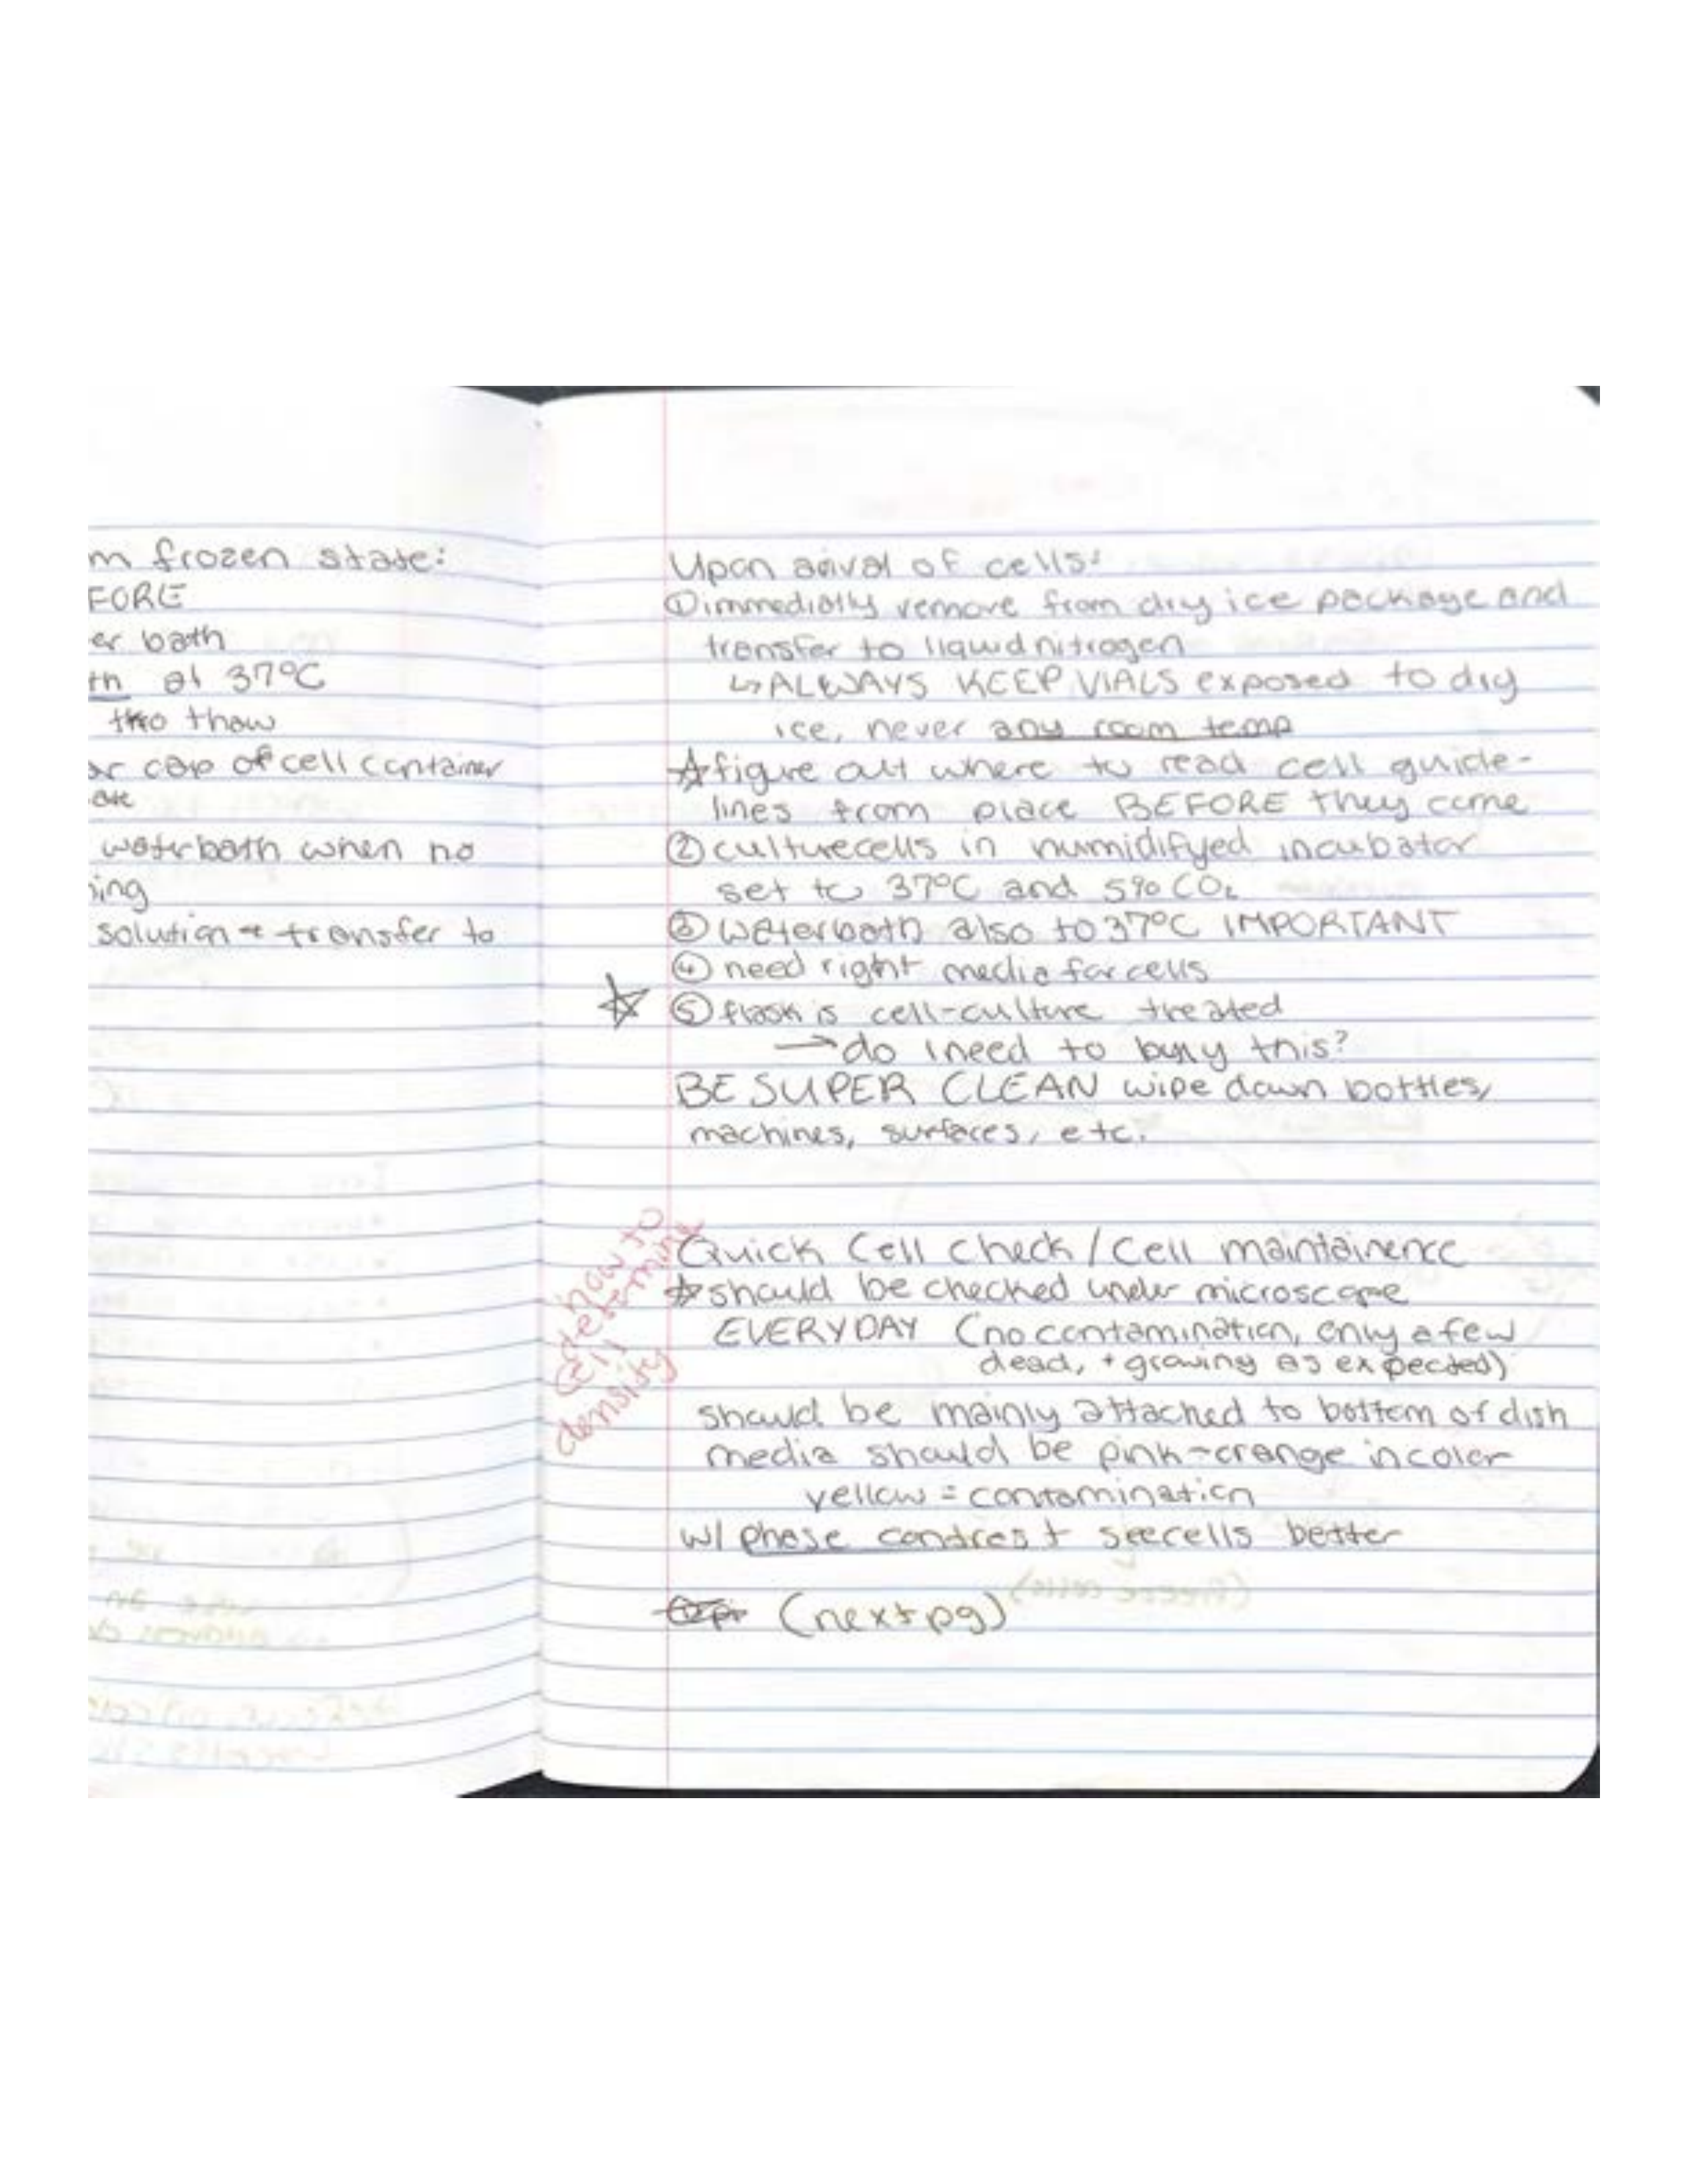 m frozen state:
FORE
er bath
th at 37°C
to thaw
or cap of cell container
ate
waterbath when no
ing
solution + transfer to
Upon arival of cells:
① immediatly remove from dry ice package and
transfer to liquid nitrogen
↳ ALWAYS KEEP VIALS exposed to dry
ice, never any room temp
☆ figure out where to read cell guide-
lines from place BEFORE they come
② culture cells in humidifyed incubator
set to 37°C and 5% CO₂
③ waterbath also to 37°C IMPORTANT
④ need right media for cells
☆ ⑤ flask is cell-culture treated
→ do I need to buy this?
BE SUPER CLEAN wipe down bottles,
machines, surfaces, etc.
how to
determine
cell
density
Quick Cell Check / Cell maintainence
☆ should be checked under microscope
EVERYDAY (no contamination, only a few
dead, + growing as expected)
should be mainly attached to bottom of dish
media should be pink-orange in color
yellow = contamination
w/ phase contrast see cells better
(next pg)